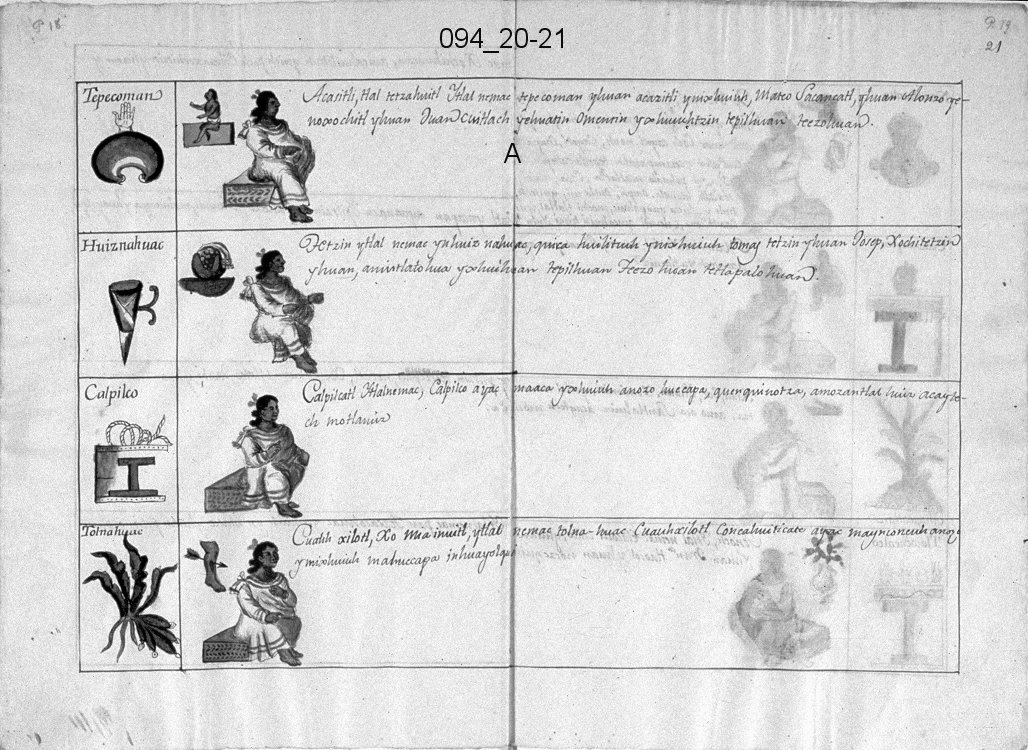 P. 18
094_20-21
P. 19
21
Tepecoman
Acasitli, tlal tetzahuitl Ytlal nemac tepecoman yhuan acazitli ymixhuiuh, Mateo Sacancatl, yhuan Alonzo ye-
noxochitl yhuan Duan Cuitlach yehuatin Omentin yxhuiuhtzin tepilhuan teezohuan.
A
Huiznahuac
Tetzin ytlal nemac ynhuiz nahuac, quiça huilitzuh ymixhuiuh tomas tetzin yhuan Josep, Xochitetzin
yhuan, amintlatohua yxhuihuan tepilhuan Teezohuan tetlapalohuan.
Calpilco
Calpilcatl Ytlalnemac, Calpilco ayac maaca yxhuiuh anozo huecapa, quenquinotza, amozantlal huia acayte-
ch motlania
Tolnahuac
Cuauh xilotl, Xo ytlal nemac tolna-huac Cuauhxilotl ayac maynconeuh anozo
ymixhuiuh mahuecapa inhuayolque